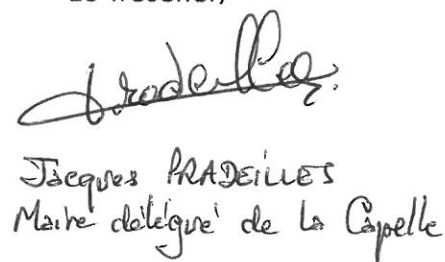 Pradeilles
Jacques PRADEILLES
Maire délégué de La Capelle